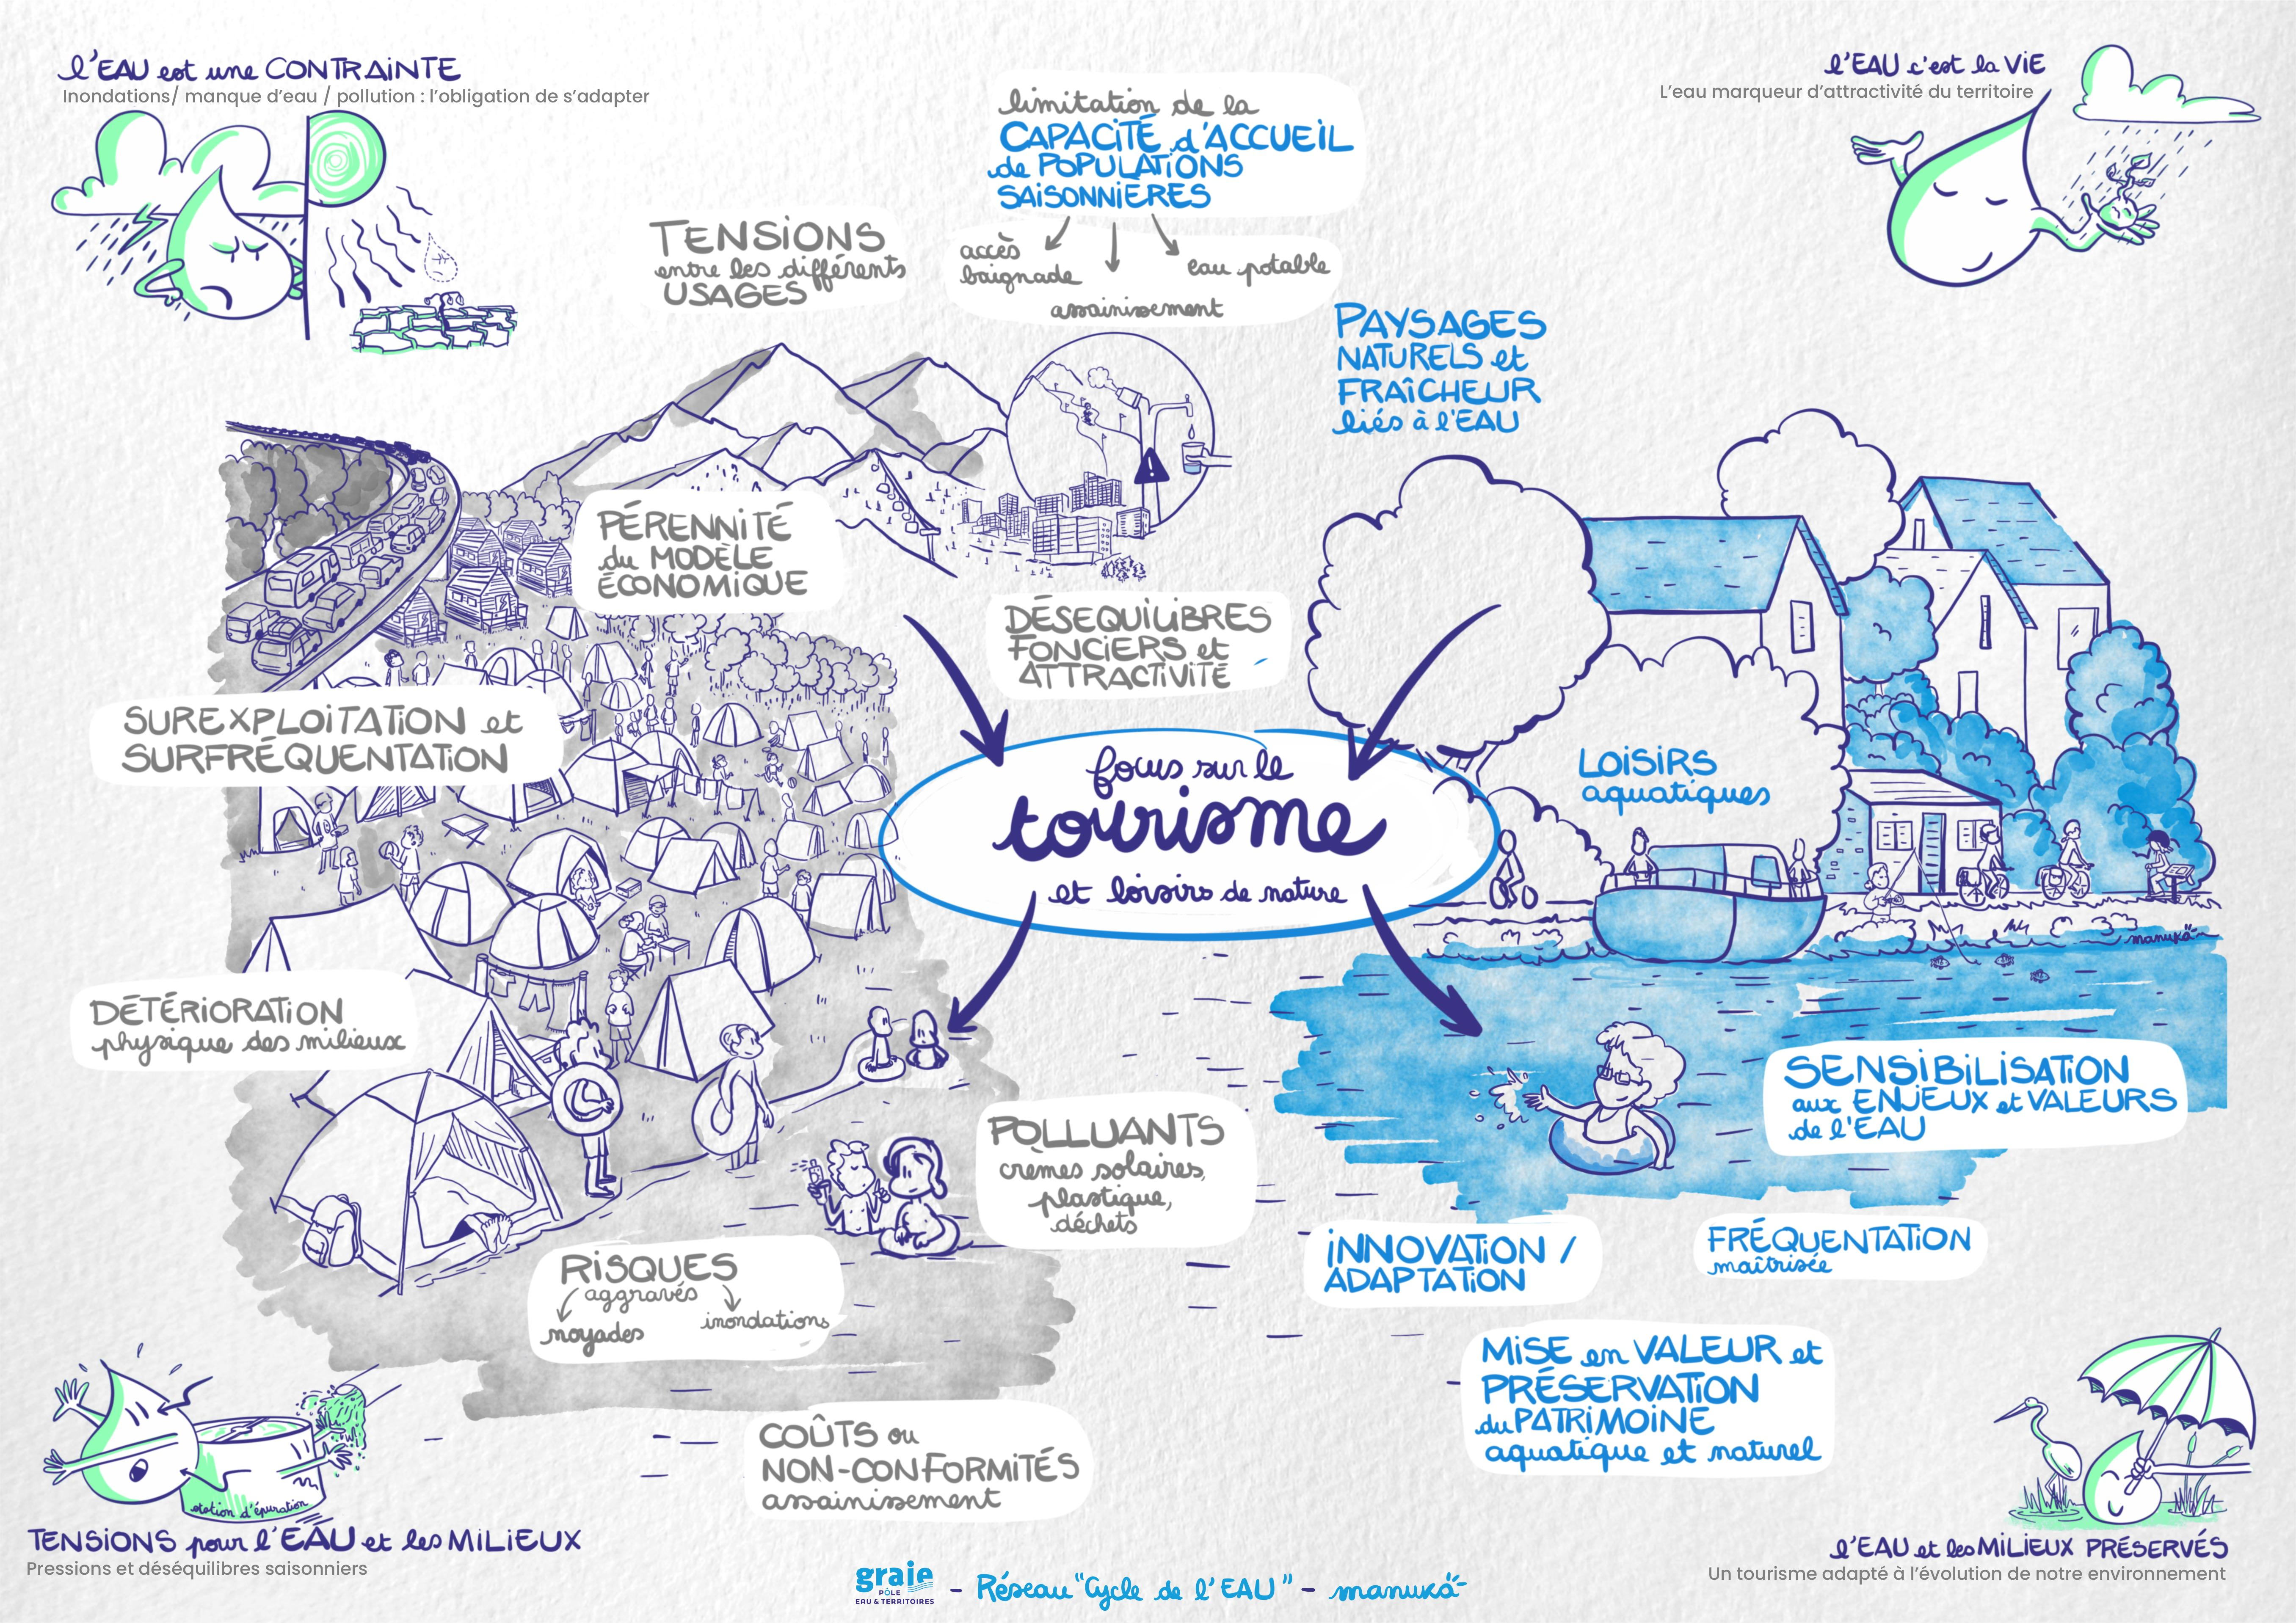 l'EAU est une CONTRAiNTE
Inondations/ manque d'eau / pollution : l'obligation de s'adapter
l'EAU c'est la ViE
L'eau marqueur d'attractivité du territoire
limitation de la
CAPACiTÉ d'ACCUEiL
de POPULATiONS
SAiSONNiÈRES
accès
baignade
assainissement
eau potable
TENSiONS
entre les différents
USAGES
PAYSAGES
NATURELS et
FRAÎCHEUR
liés à l'EAU
PÉRENNiTÉ
du MODÈLE
ÉCONOMiQUE
DÉSEQUiLiBRES
FONCiERS et
ATTRACTiViTÉ
SUREXPLOiTATiON et
SURFRÉQUENTATiON
focus sur le
tourisme
et loisirs de nature
LOiSiRS
aquatiques
manuka
DÉTÉRiORATiON
physique des milieux
SENSiBiLiSATiON
aux ENJEUX et VALEURS
de l'EAU
POLLUANTS
crèmes solaires,
plastique,
déchets
RiSQUES
aggravés
noyades
inondations
iNNOVATiON /
ADAPTATiON
FRÉQUENTATiON
maîtrisée
MiSE en VALEUR et
PRÉSERVATiON
du PATRiMOiNE
aquatique et naturel
COÛTS ou
NON-CONFORMiTÉS
assainissement
station d'épuration
TENSiONS pour l'EAU et les MiLiEUX
Pressions et déséquilibres saisonniers
l'EAU et les MiLiEUX PRÉSERVÉS
Un tourisme adapté à l'évolution de notre environnement
graie
PÔLE
EAU & TERRITOIRES
- Réseau "Cycle de l'EAU" - manuka